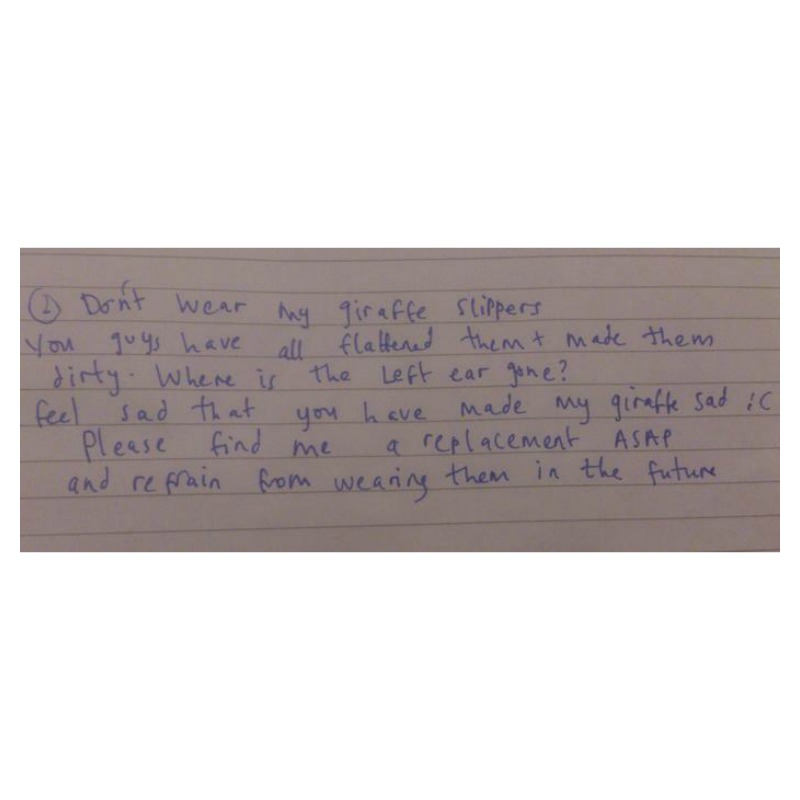 ② Don't wear my giraffe slippers
You guys have all flattened them + made them
dirty. Where is the left ear gone?
feel sad that you have made my giraffe sad :C
Please find me a replacement ASAP
and refrain from wearing them in the future